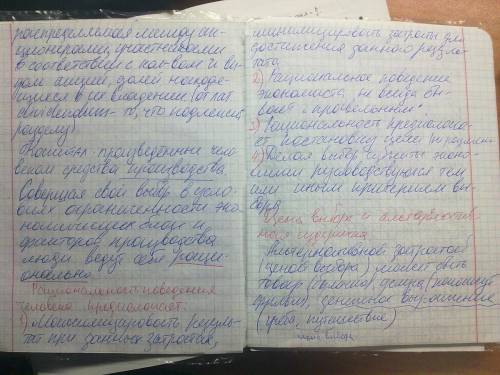 распределяемая между ак-
ционерами, участниками
в соответствии с кол-вом и ви-
дом акций, долей находя-
щиеся в их владении (от лат.
dividendum - то, что подлежит
разделу)
Капитал - произведённые чело-
веком средства производства.
Совершая свой выбор в усло-
виях ограниченности эко-
номических благ и
факторов производства
люди ведут себя рацио-
нально.
Рациональность поведения
человека предполагает:
1) Максимизировать резуль-
тат при данных затратах,
минимизировать затраты для
достижения данного резуль-
тата
2) Рациональное поведение
экономиста не всегда бы-
вает
3) Рациональность предполага-
ет постановку целей
4) Делая выбор субъекты эконо-
мики руководствуются тем
или иным критерием вы-
бора
Цена выбора и альтернатив-
ная издержка
Альтернативной затратой
(ценой выбора) может быть
товар
денежное вознаграждение
(учёба, путешествие)